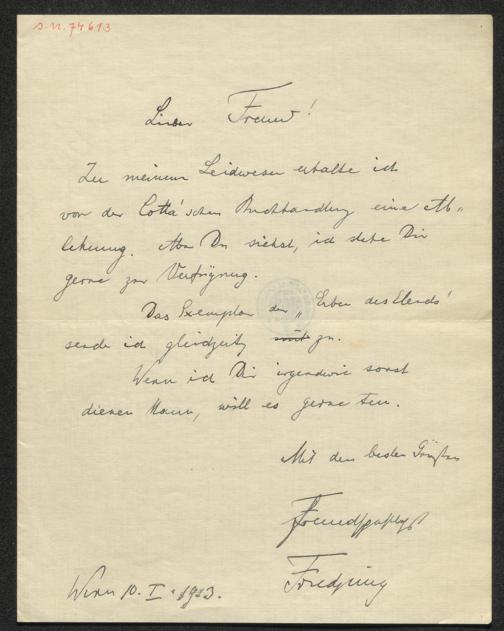 J.N. 74613
Lieber Freund!
Zu meinem Leidwesen erhalte ich
von der Cotta'schen Buchhandlung eine Ab„
lehnung. Also Du siehst, ich stehe Dir
gerne zur Verfügung.
Das Exemplar der „Erben des Elends"
sende ich gleichzeitig zu.
Wenn ich Dir irgendwie sonst
dienen kann, will es gerne tun.
Mit den besten Grüßen
Freundschaftlichst
Friedjung
Wien 10. I. 1913.